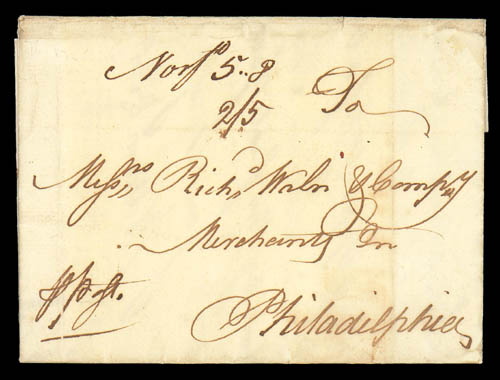 Norfo 5..8
2/5 To
Messrs Richd Waln & Compy
Merchants In
p Post.
Philadelphia